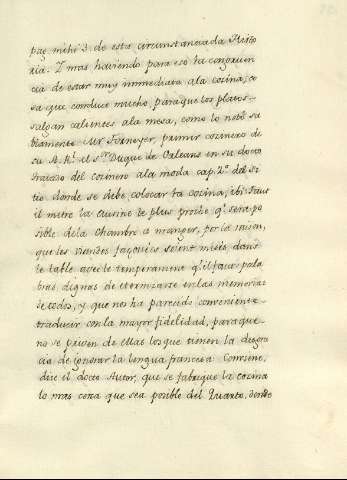 pag. mihi 3 de esta circunstanciada Histo
ria. Y mas haviendo para eso ha congruen
cia de estar muy inmediato ala cocina; co
sa que conduce mucho, para que los platos
salgan calientes ala mesa, como lo notò sa
biamente Mr. primer cocinero de
su A. Rl. el Sr. Duque de Orleans en su docto
tratado del cocinero ala moda cap. 2º. del si
tio donde se debe colocar la cocina, ibi: faut
il metre la cuisine le plus proche qª. sera po
sible dela chambre a manger, por la raison,
que les viandes façonèes soient mises dans
le table avec le temperamme qª. il faut: pala
bras dignas de eternizarse en las memorias
de todos, y que nos ha parecido conveniente
traducir con la mayor fidelidad, para que
no se priven de ellas los que tienen la desgra
cia de ignorar la lengua francesa. Conviene,
dice el docto Autor, que se fabrique la cocina
lo mas cerca que sea posible del Quarto, donde